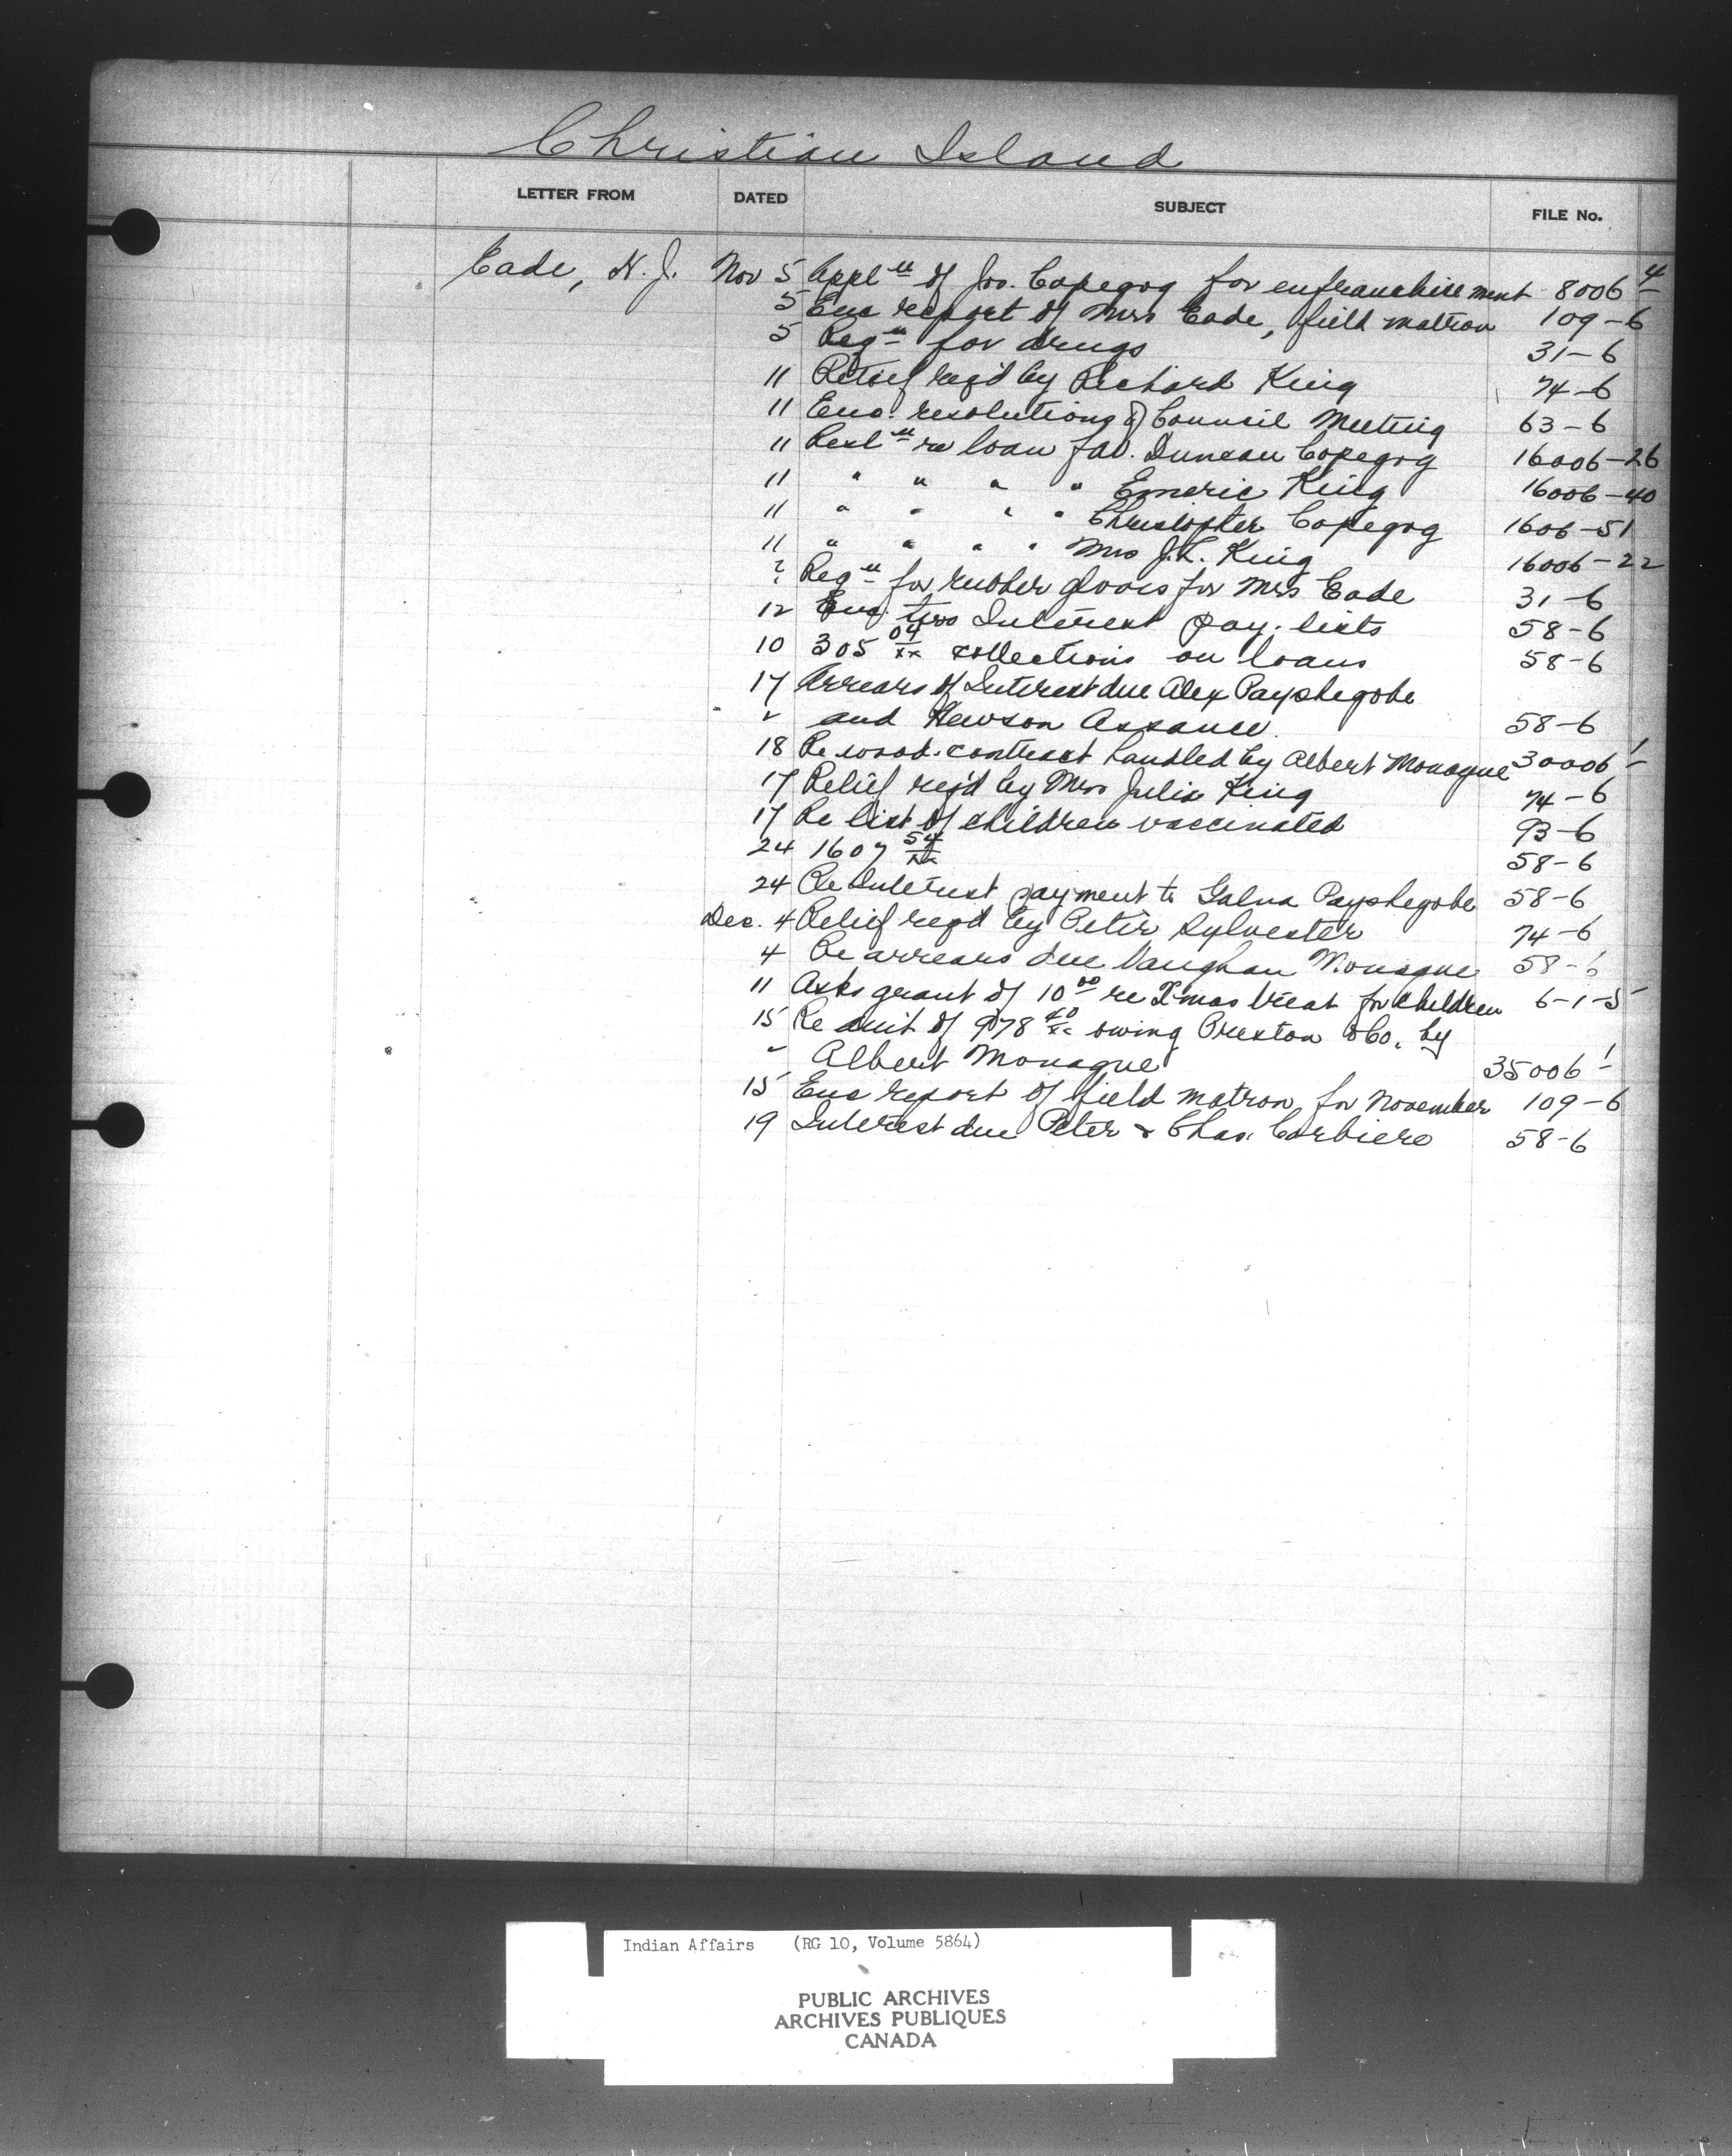 Christian Island
LETTER FROM DATED SUBJECT FILE No.
Eade, H. J. Nov 5 Appl'n of Jos. Copegog for enfranchisement 8006-4
5 Enc report of Mrs Eade, field matron 109-6
5 Req'n for drugs 31-6
11 Relief req'd by Richard King 74-6
11 Enc. resolutions of Council Meeting 63-6
11 Resl'n re loan fav. Duncan Copegog 16006-26
11 " " " " Emeric King 16006-40
11 " " " " Christopher Copegog 1606-51
11 " " " " Mrs J.L. King 16006-22
? Req'n for rubber gloves for Mrs Eade 31-6
12 Enc. two Interest pay. lists 58-6
10 305 04/xx collections on loans 58-6
17 Arrears of Interest due Alex Payshegobe
" and Hewson Assance. 58-6
18 Re wood contract handled by Albert Monague 30006-1
17 Relief req'd by Mrs Julia King 74-6
17 Re list of children vaccinated 93-6
24 1607 54/xx 58-6
24 Re Interest payment to Galna Payshegobe 58-6
Dec. 4 Relief req'd by Peter Sylvester 74-6
4 Re arrears due Vaughan Monague 58-6
11 Asks grant of 10 00 re Xmas treat for children 6-1-5
15 Re amt of 978 40/xx owing Preston & Co. by
" Albert Monague 35006-1
15 Enc report of field matron for November 109-6
19 Interest due Peter & Chas. Corbiere 58-6
Indian Affairs (RG 10, Volume 5864)
PUBLIC ARCHIVES
ARCHIVES PUBLIQUES
CANADA